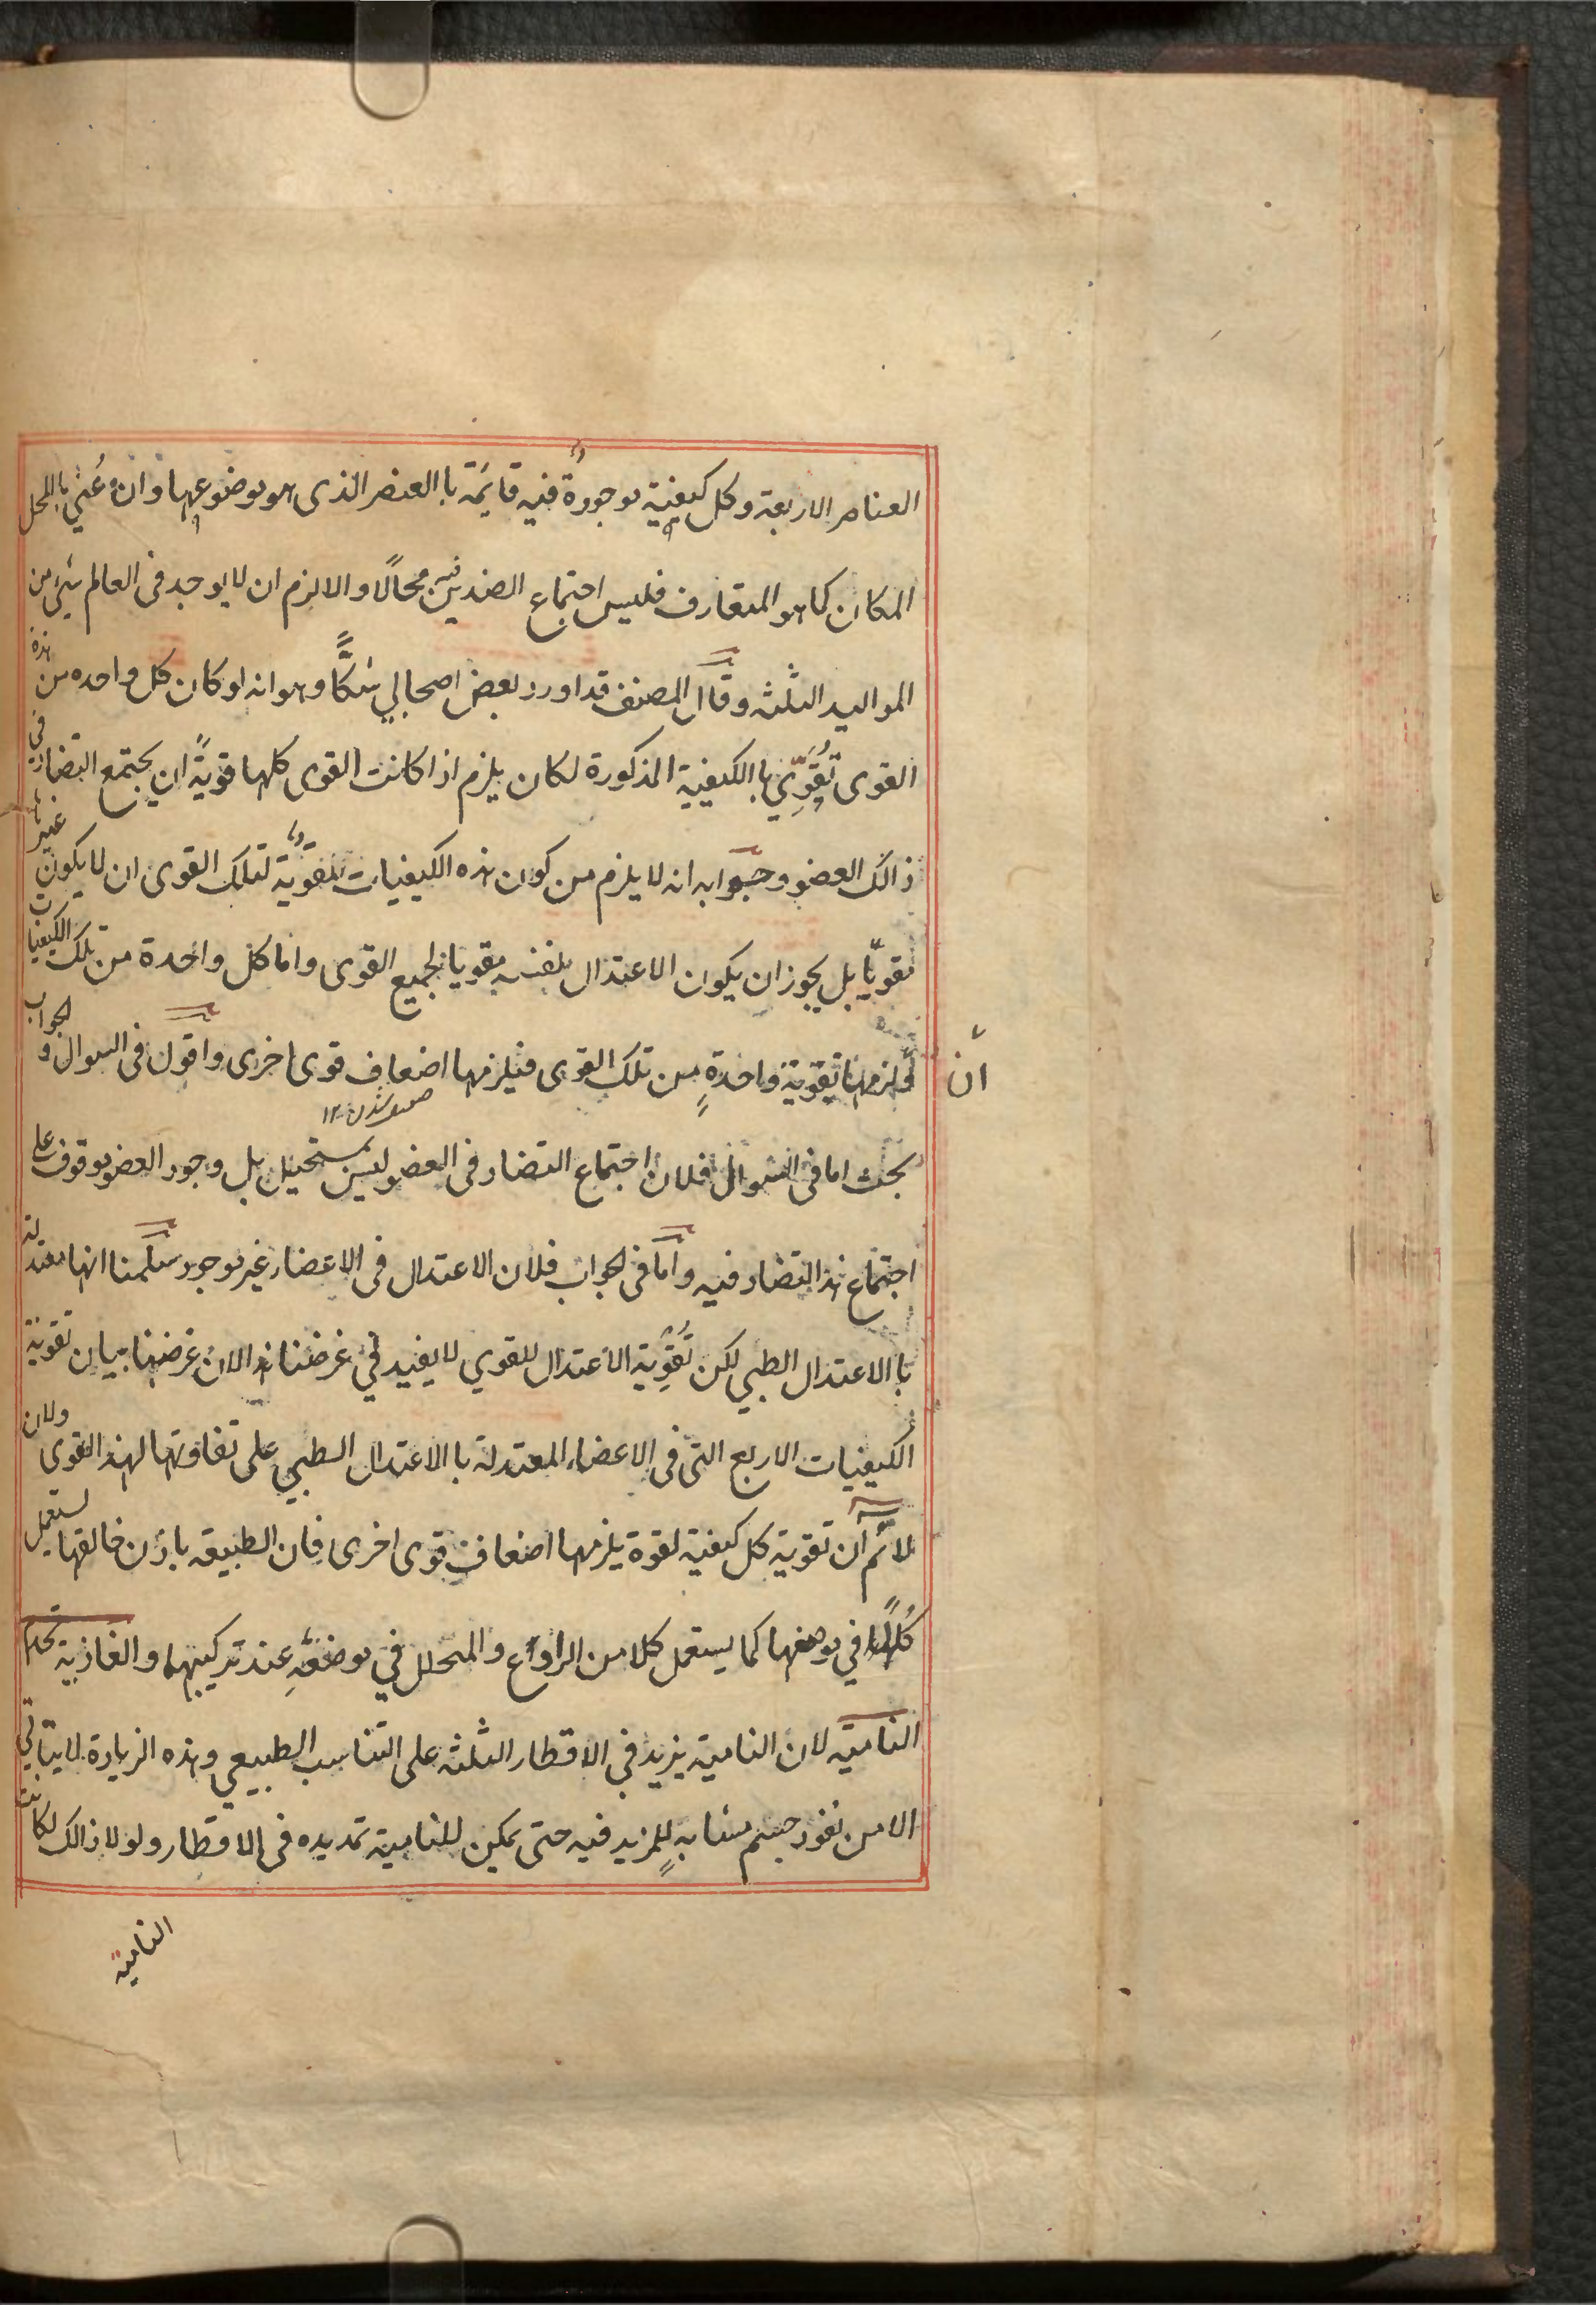 العناصر الاربعة وكل كيفية موجودة فيه قايمة با العنصر الذى هو موضوعها وان عُني بالمحل
المكان كما هو المتعارف فليس اجتماع الضدين فيه محالًا والا لزم ان لا يوجد فى العالم شيء من
المواليد الثلثه وقال المصنف قد اورد بعض اصحابي شكًّا وهو انه لو كان كل واحده من هذه
القوى تُقوّي با الكيفية المذكورة لكان يلزم اذا كانت القوى كلها قويةً ان يجتمع التضاد في
ذالك العضو وجوابه انه لا يلزم من كون هذه الكيفيات مقوّية لتلك القوى ان لا يكون غيرها
مقويّا بل يجوز ان يكون الاعتدال بنفسه مقويا لجميع القوى واما كل واحدة من تلك الكيفيات
يلزمها تقوية واحدةٍ من تلك القوى فيلزمها اضعاف قوى اخرى واقول فى السوال و الجواب
ان
ضعيف شدن ١٢
بحث اما فى السوال فلان اجتماع التضاد فى العضو ليس بمستحيل بل وجود العضو موقوف على
اجتماع هذا التضاد فيه واما فى الجواب فلان الاعتدال فى الاعضاء غير موجود سلمنا انها معتدلة
با الاعتدال الطبي لكن تُقوِّية الاعتدال للقوي لا يفيد في غرضنا هذا لان غرضنا بيان تقوية
الكيفيات الاربع التى فى الاعضاء المعتدلة با الاعتدال الطبي على تفاوتها لهذه القوى ولان
لا نم ان تقوية كل كيفية لقوة يلزمها اضعاف قوى اخرى فان الطبيعه باذن خالقها تستعمل
كُلًّا في موضعها كما يستعمل كلا من الرادع والمحلل في موضعهِ عند تركيبهما والغاذية تخدم
النامية لان النامية يزيد في الاقطار الثلثه على التناسب الطبيعي وهذه الزيادة لا يتاتي
الا من نفوذ جسم مشابهٍ للمزيد فيه حتى يمكن للنامية تمديده فى الاقطار ولولا ذالك لكانت
النامية